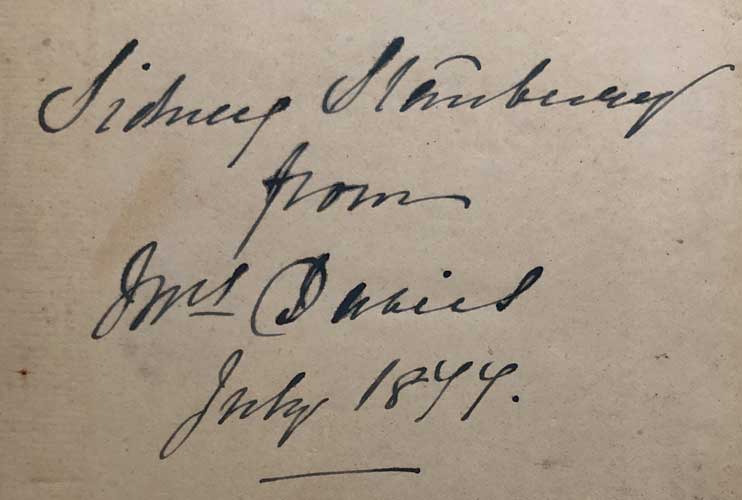 Sidney Stanbury
from
Mrs Davies
July